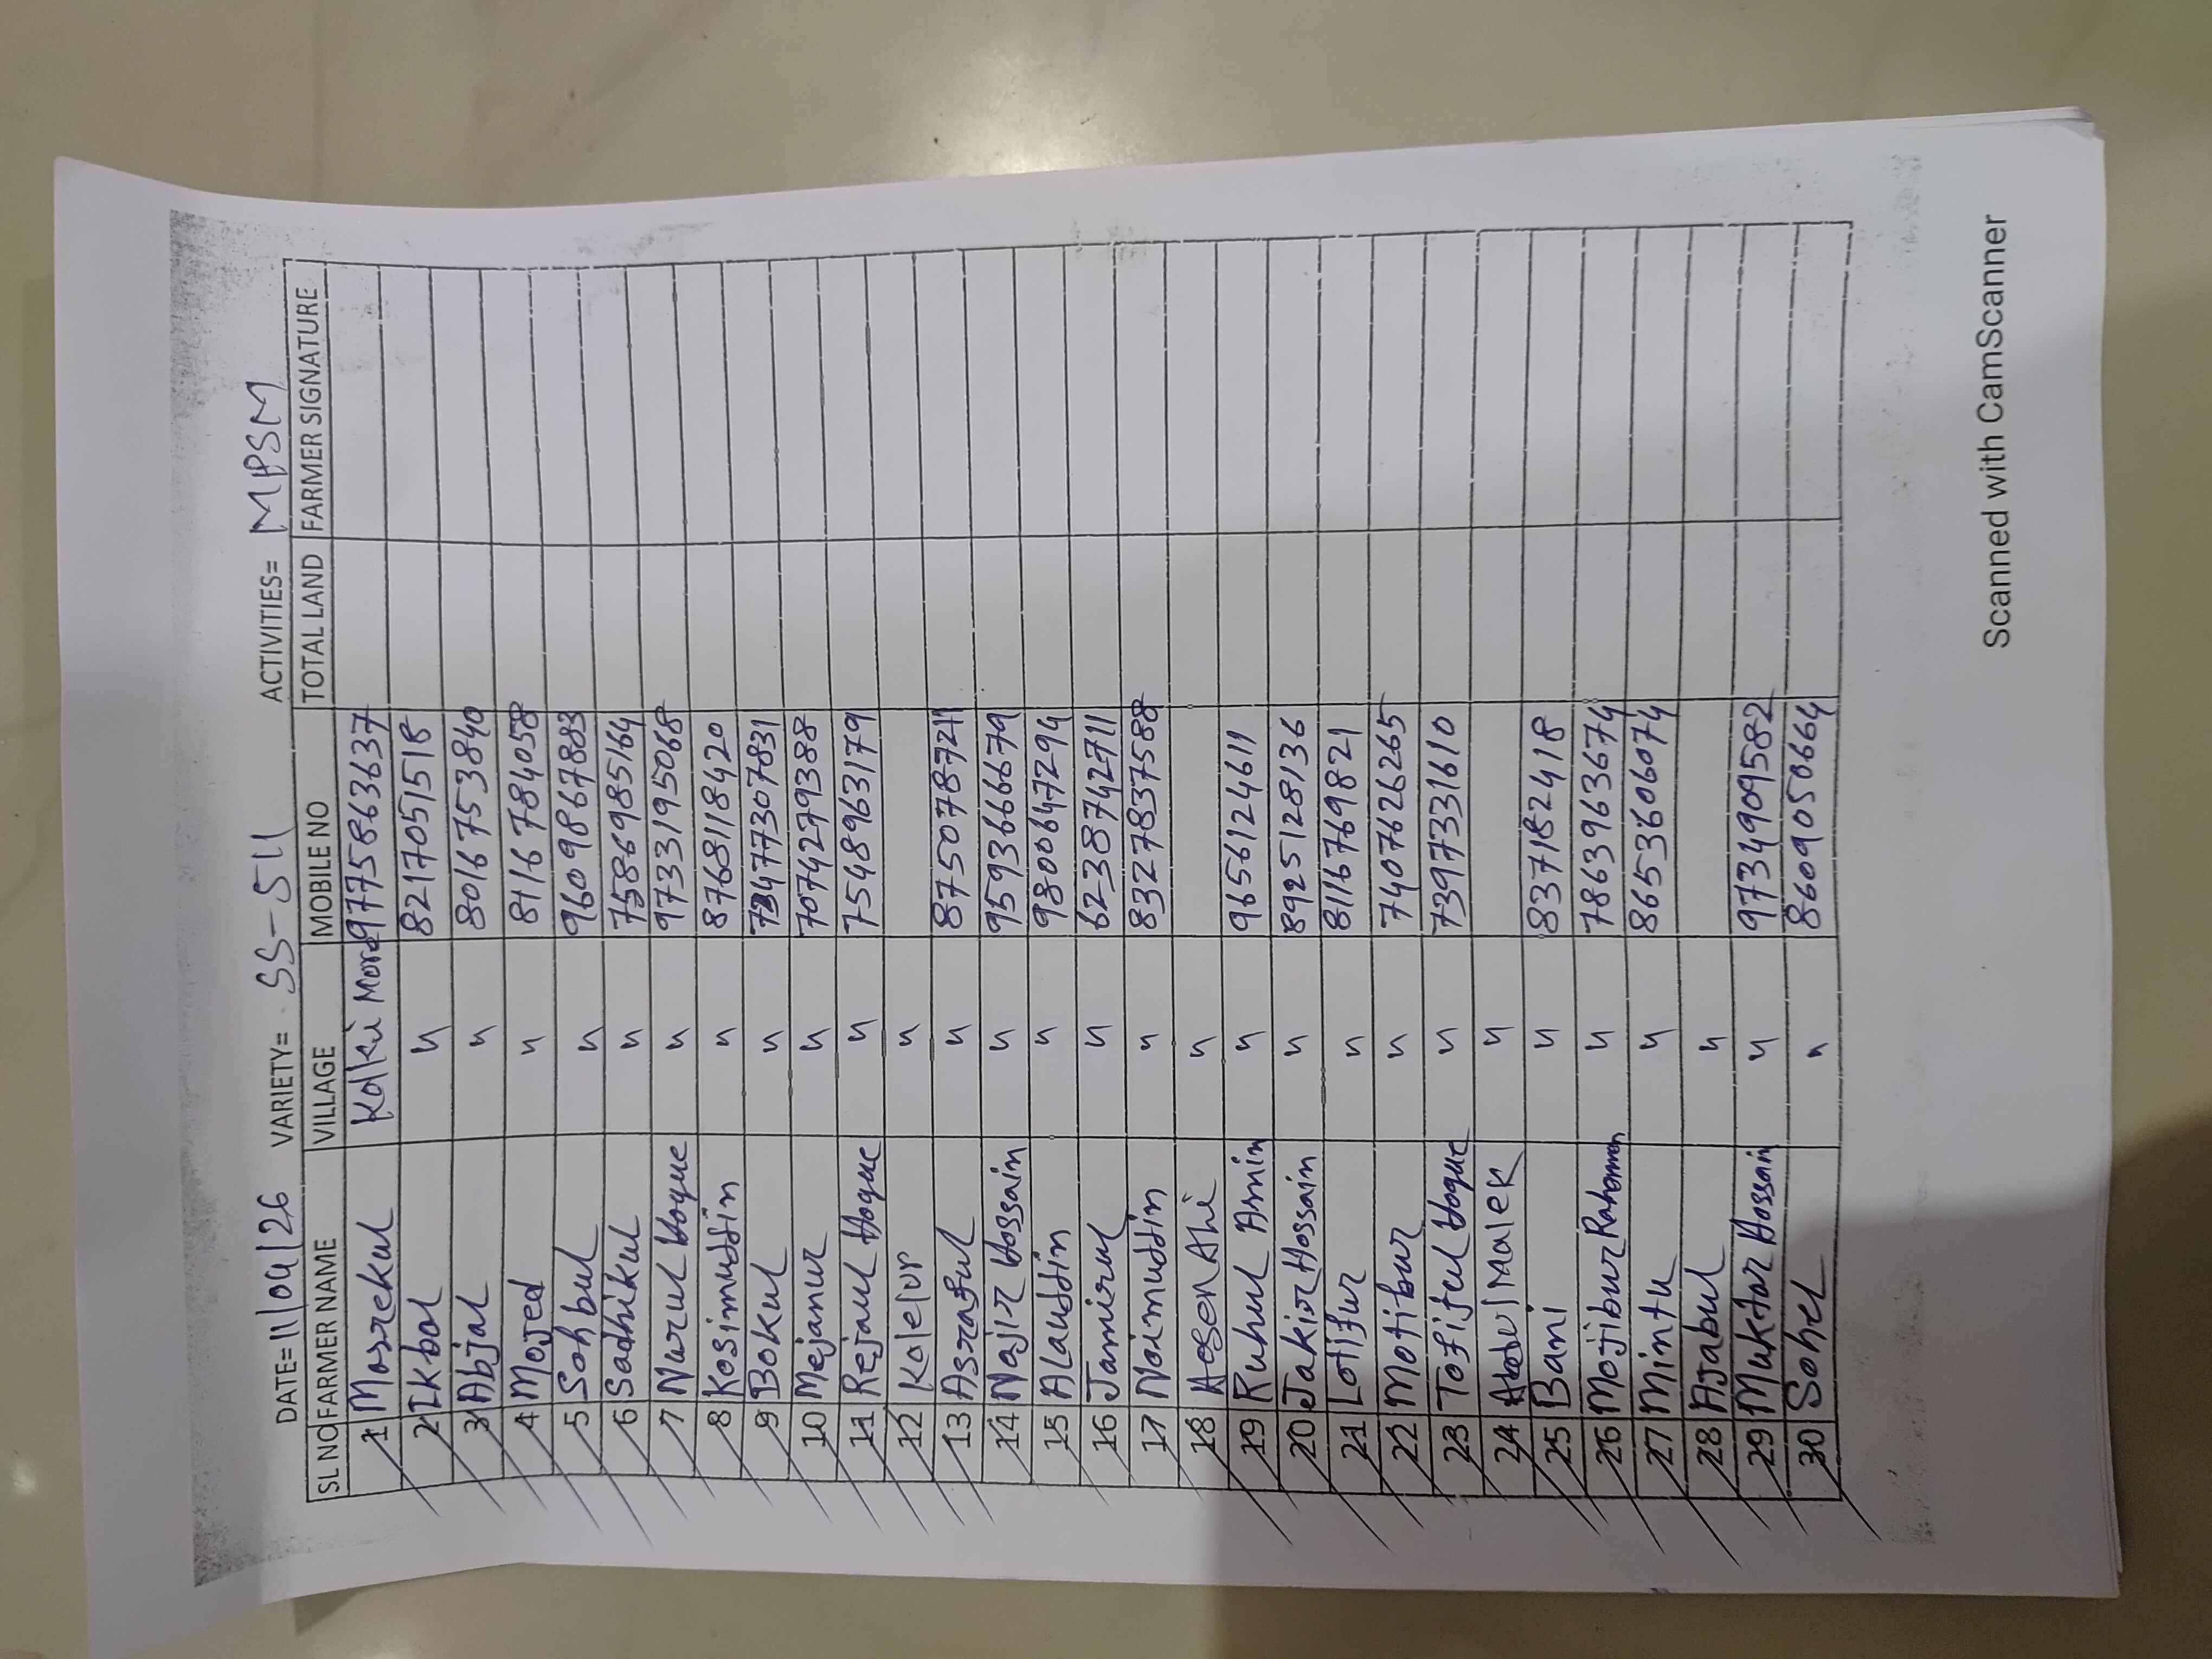 DATE= 11/04/26 VARIETY= SS-511 ACTIVITIES= MPSM
SL NO FARMER NAME VILLAGE MOBILE NO TOTAL LAND FARMER SIGNATURE
1 Mosrekul Kolki More 9775863637
2 Ikbal " 8217051518
3 Abjal " 8016753840
4 Mojed " 8116784058
5 Sohbul " 9609867883
6 Sadhikul " 7586985164
7 Nurul Hoque " 9733195068
8 Kosimuddin " 8768118420
9 Bokul " 7347730783 1
10 Mejanur " 7074279388
11 Rejaul Hoque " 7548963179
12 Kalelur "
13 Asraful " 8750787271
14 Najir Hossain " 9593666679
15 Alauddin " 9800647294
16 Jamirul " 6238742711
17 Noimuddin " 8327837588
18 Hosen Ali "
19 Ruhul Amin " 9656124611
20 Jakir Hossain " 8925128136
21 Lotifur " 8116769821
22 Motibur " 7407626265
23 Tofijul Hoque " 7397331610
24 Abdul Malek "
25 Bani " 837182418
26 Mojibur Rahaman " 7863963674
27 Mintu " 8653606074
28 Ajabul "
29 Muktar Hossain " 9734909582
30 Sohel " 8609050664
Scanned with CamScanner